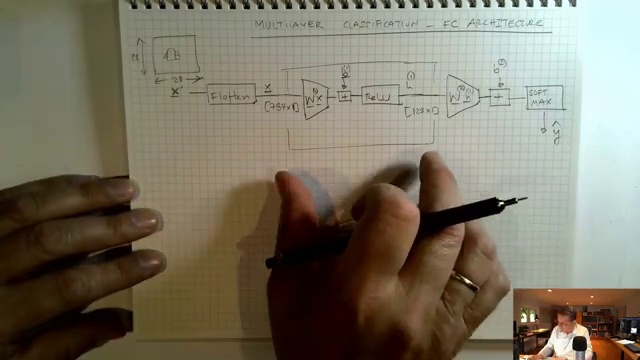 MULTILAYER CLASSIFICATION - FC ARCHITECTURE
28
28
X' Flatten X [784x1] W⁽¹⁾X + b⁽¹⁾ ReLU h⁽¹⁾ [128x1] W⁽²⁾h⁽¹⁾ + b⁽²⁾ SOFT
MAX
ŷ